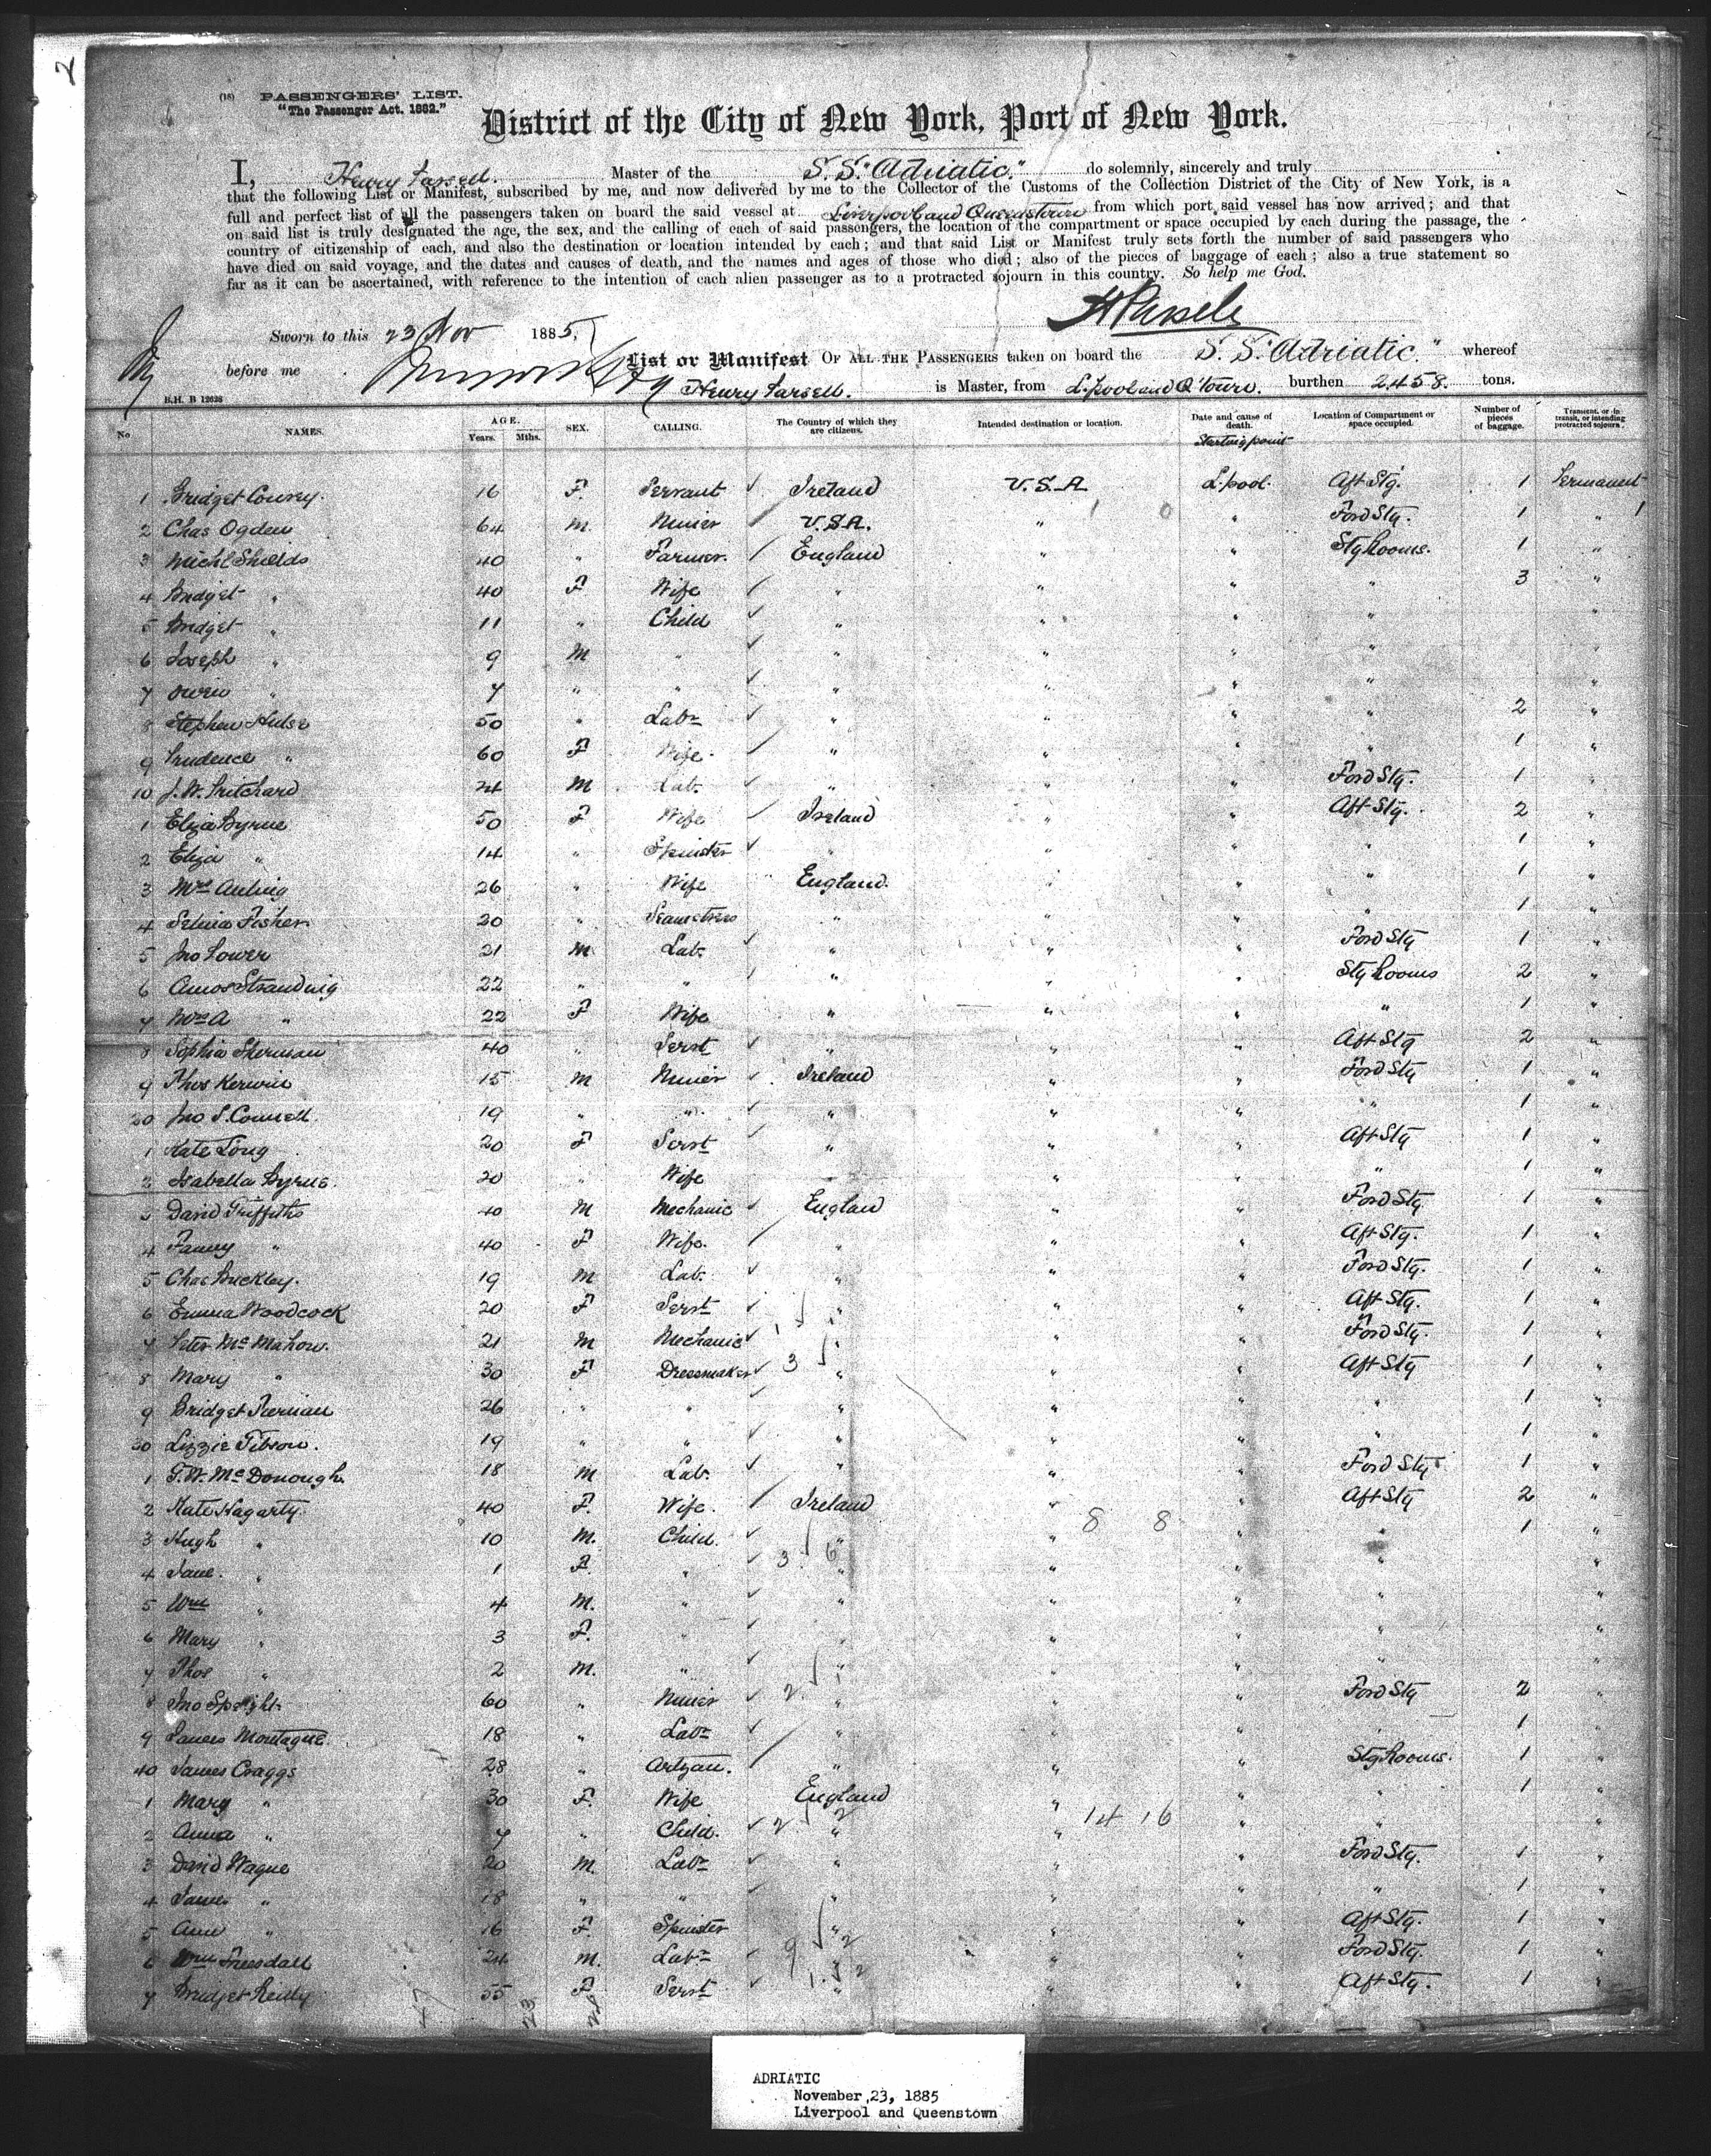 2
(18) PASSENGERS' LIST.
"The Passenger Act. 1882."
District of the City of New York, Port of New York.
I, Henry Parsell. Master of the S.S. "Adriatic." do solemnly, sincerely and truly
that the following List or Manifest, subscribed by me, and now delivered by me to the Collector of the Customs of the Collection District of the City of New York, is a
full and perfect list of all the passengers taken on board the said vessel at Liverpool and Queenstown from which port said vessel has now arrived; and that
on said list is truly designated the age, the sex, and the calling of each of said passengers, the location of the compartment or space occupied by each during the passage, the
country of citizenship of each, and also the destination or location intended by each; and that said List or Manifest truly sets forth the number of said passengers who
have died on said voyage, and the dates and causes of death, and the names and ages of those who died; also of the pieces of baggage of each; also a true statement so
far as it can be ascertained, with reference to the intention of each alien passenger as to a protracted sojourn in this country. So help me God.
Sworn to this 23 Nov 1885,
before me
B.H. B 12638
List or Manifest OF ALL THE PASSENGERS taken on board the S.S. "Adriatic." whereof
Henry Parsell. is Master, from L.pool and Q'town. burthen 2458. tons.
No NAMES. AGE. Years. Mths. SEX. CALLING. The Country of which they are citizens. Intended destination or location. Date and cause of death. Starting point Location of Compartment or space occupied. Number of pieces of baggage. Transient, or in transit, or intending protracted sojourn.
1 Bridget Convey. 16 F. Servant Ireland U.S.A L.pool. Aft Stg. 1 Permanent
2 Chas Ogden 64 m. Miner U.S.A. " " Ford Stg. 1 "
3 Michl Shields 40 " Farmer. England " " Stg Rooms. 1 "
4 Bridget " 40 F Wife " " " " 3 "
5 Bridget " 11 " Child " " " " "
6 Joseph " 9 M " " " " " "
7 Owen " 7 " " " " " " "
8 Stephen Hulse 50 " Labr " " " " 2 "
9 Prudence " 60 F Wife. " " " " 1 "
10 J.W. Pritchard 24 M Lab. " " " Ford Stg. 1 "
1 Eliza Byrne 50 F Wife Ireland " " Aft Stg. 2 "
2 Eliza " 14 " Spinster " " " " 1 "
3 Mrs Auling 26 " Wife England. " " " 1 "
4 Selina Fisher 20 " Seamstress " " " " 1 "
5 Jno Lower 21 M Lab. " " " Ford Stg 1 "
6 Amos Strandwig 22 " " " " " Stg Rooms 2 "
7 Mrs A " 22 F Wife " " " " 1 "
8 Sophia Sherman 40 " Servt " " " Aft Stg 2 "
9 Thos Kerwin 15 M Miner Ireland " " Ford Stg 1 "
20 Jno S. Connell. 19 " " " " " " 1 "
1 Kate Long 20 F Servt " " " Aft Stg 1 "
2 Isabella Byrne. 20 " Wife " " " " 1 "
3 David Griffiths 40 M Mechanic England " " Ford Stg 1 "
4 Fanny " 40 F Wife. " " " Aft Stg. 1 "
5 Chas Buckley. 19 M Lab. " " " Ford Stg. 1 "
6 Emma Woodcock 20 F Servt " " " Aft Stg. 1 "
7 Peter McMahon. 21 M Mechanic " " " Ford Stg. 1 "
8 Mary " 30 F Dressmaker " " " Aft Stg 1 "
9 Bridget Tiernan 26 " " " " " " 1 "
30 Lizzie Gibson. 19 " " " " " " 1 "
1 T.W. McDonough. 18 M Lab. " " " Ford Stg 1 "
2 Kate Hagarty 40 F. Wife. Ireland " " Aft Stg 2 "
3 Hugh " 10 M. Child. " " " " 1 "
4 Jane. " 1 F. " " " " " "
5 Wm " 4 M. " " " " " "
6 Mary " 3 F. " " " " " "
7 Thos " 2 M. " " " " " "
8 Jno Speight 60 " Miner " " " Ford Stg 2 "
9 James Montague. 18 " Labr " " " " 1 "
40 James Craggs 28 " Artzan. " " " Stg Rooms. 1 "
1 Mary " 30 F. Wife England " " " 1 "
2 Anna " 7 " Child. " " " " "
3 David Wague 20 M. Labr " " " Ford Stg. 1 "
4 James " 18 " " " " " " 1 "
5 Ann " 16 F. Spinster " " " Aft Stg. 1 "
6 Wm Truesdall 24 M. Labr " " " Ford Stg. 1 "
7 Bridget Reidy 55 F Servt " " " Aft Stg. 1 "
47 23 24
ADRIATIC
November 23, 1885
Liverpool and Queenstown